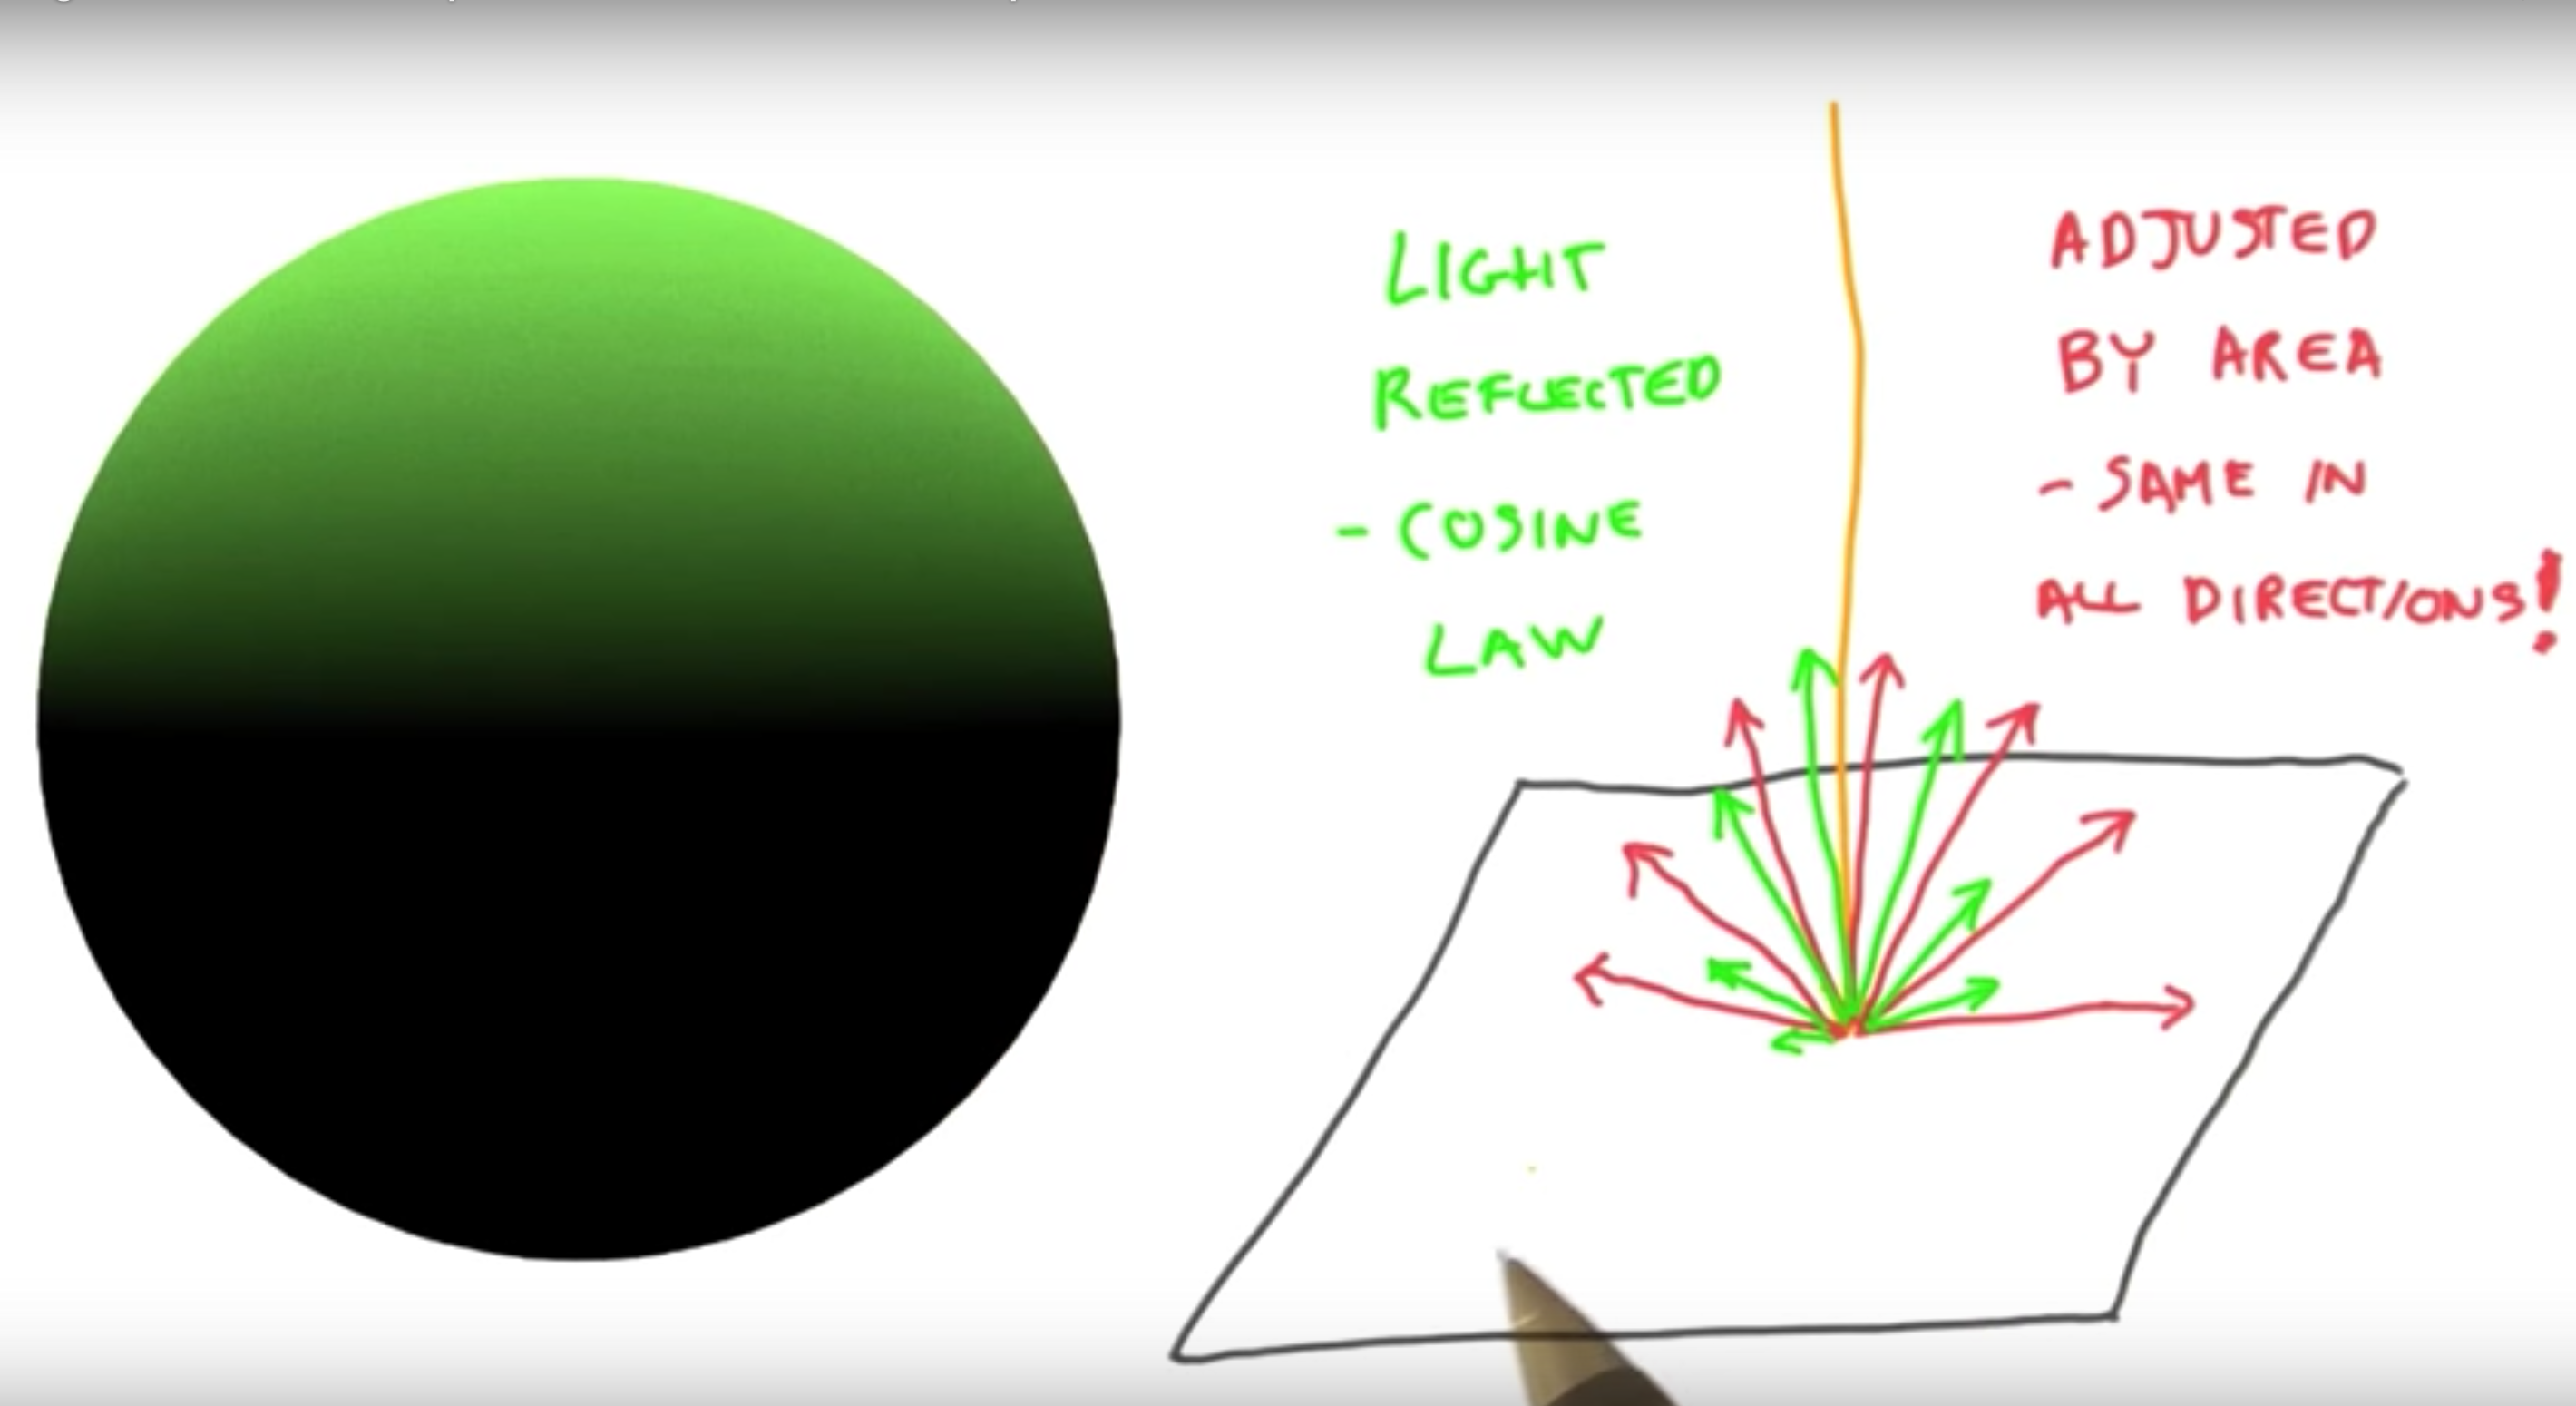 LIGHT
REFLECTED
- COSINE
LAW
ADJUSTED
BY AREA
- SAME IN
ALL DIRECTIONS!